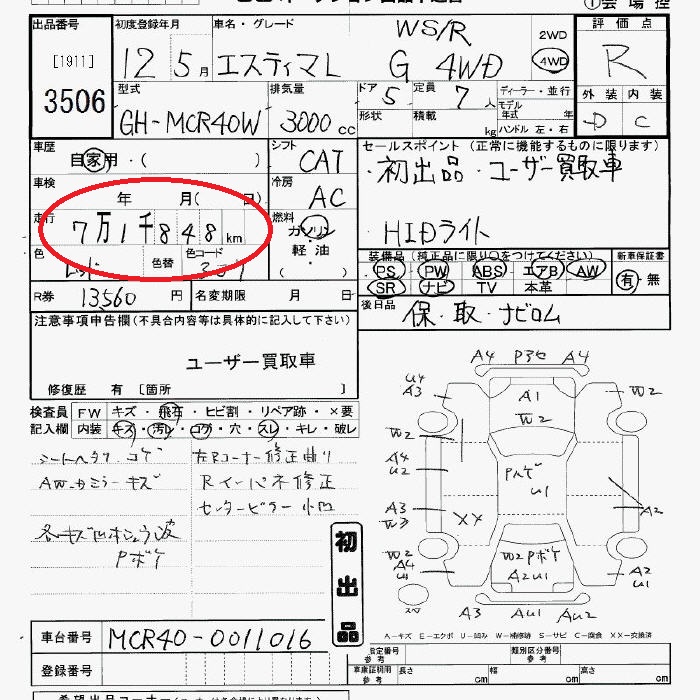 ①会場控
出品番号 初度登録年月 車名・グレード 評価点
[1911] 12 5月 エスティマL WS/R G 4WD 2WD 4WD R
3506 型式 排気量 ドア 定員 ディーラー・並行 外装 内装
GH-MCR40W 3000cc 5 7人 モデル年式 年式 D C
形状 積載 kg ハンドル 左・右
車歴 シフト セールスポイント (正常に機能するものに限ります)
自家用・( ) CAT ・初出品・ユーザー買取車
車検 冷房
年 月( 日) AC
走行 燃料
7万1千848km ガソリン HIDライト
色 色替 色コード 軽・油
装備品 (純正品に限り○をつけてください) 新車保証書
PS PW ABS エアB AW 有・無
SR ナビ TV 本革
R券 13560円 名変期限 月 日 後日品 保・取・ナビロム
注意事項申告欄(不具合内容等は具体的に記入して下さい)
ユーザー買取車
修復歴 有 [箇所 ]
検査員 FW キズ・飛石・ヒビ割・リペア跡・×要
記入欄 内装 キズ・汚レ・コゲ・穴・スレ・キレ・破レ
シートヘタリ コゲ 左Rコーナー修正曲り
AW・カミラー キズ Rインパネ修正
センターピラー小凹
Pボケ
初出品
A4 P3セ A4
U4 A3 A1 W2
W2 W2
A4 U2 Pハゲ U1
A3 W3 XX A2
W2 W2Pボケ W2
A4 U1 A2U1 A4
スペア
A3 AU1 AU2
A-キズ E-エクボ U-凹み W-補修跡 S-サビ C-腐食 XX-交換済
車台番号 MCR40-0011016
登録番号
指定番号 参考 類別区分番号 参考
車庫証明 参考 長さ cm 幅 cm 高さ cm